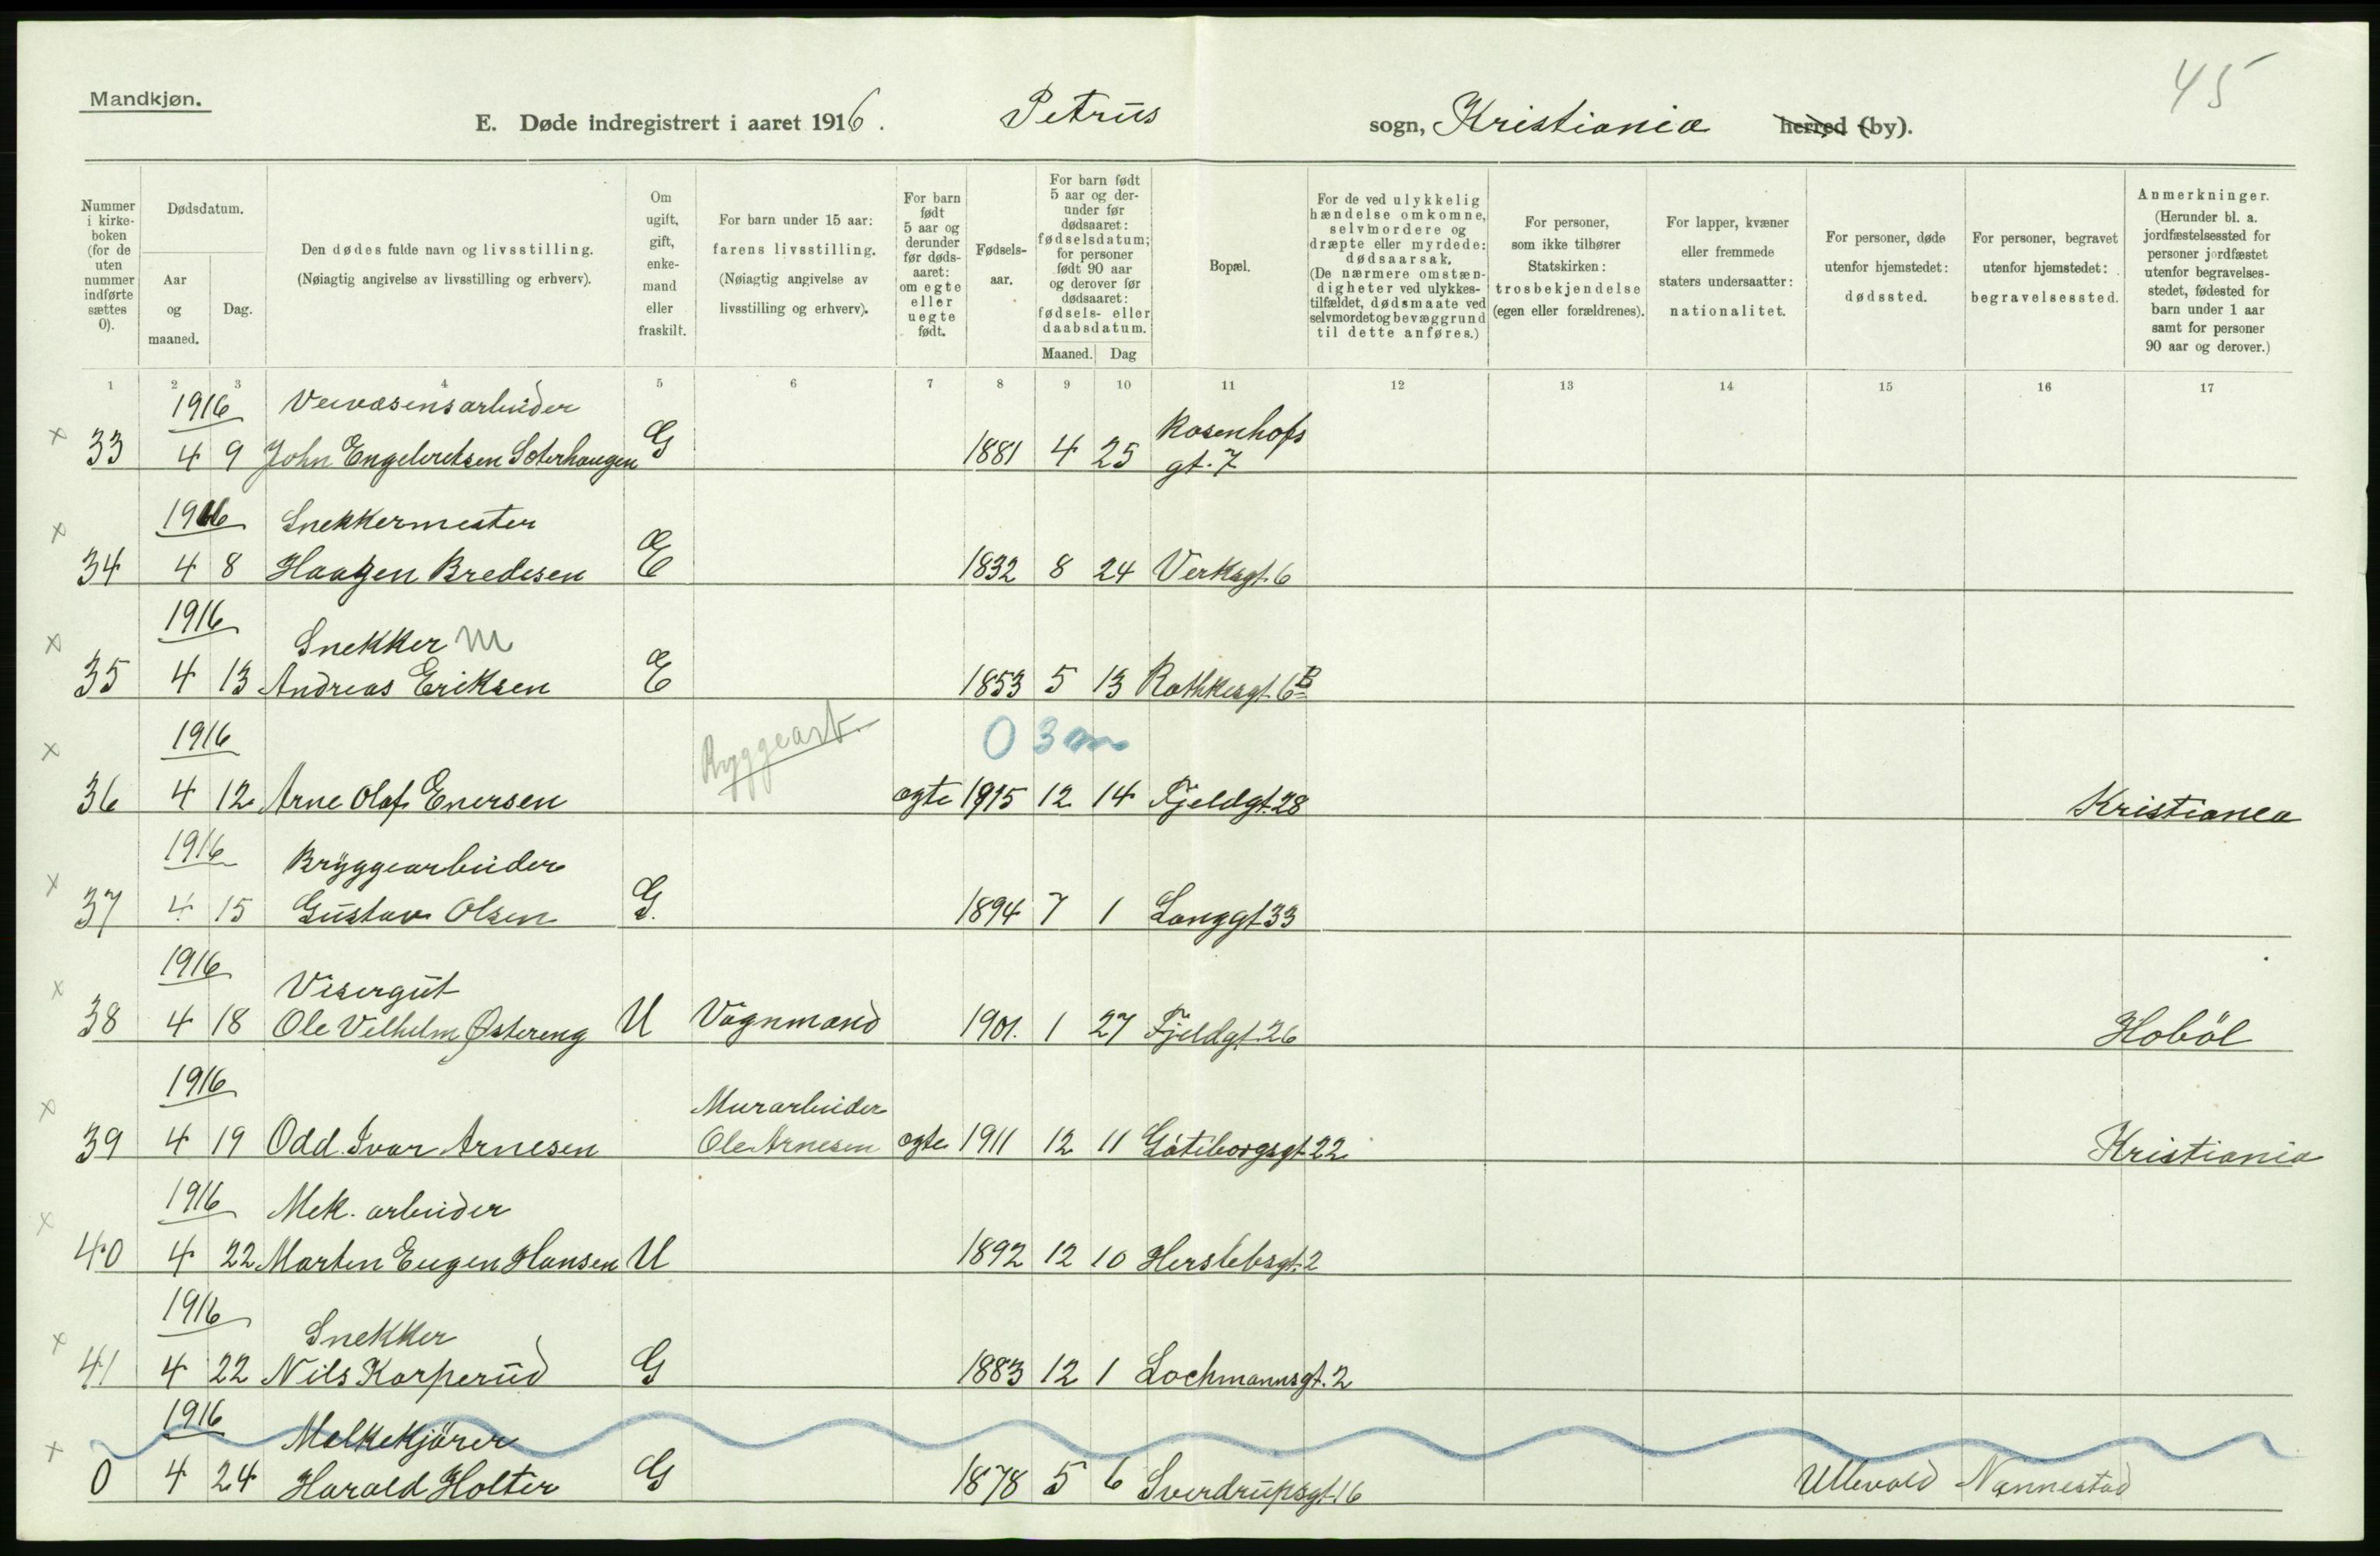 45
Mandkjøn.
E. Døde indregistrert i aaret 1916. Petrus sogn, Kristiania herred (by).
Nummer i kirkeboken (for de uten nummer indførte sættes 0).
Dødsdatum.
Aar og maaned.
Dag.
Den dødes fulde navn og livsstilling.
(Nøiagtig angivelse av livsstilling og erhverv).
Om ugift, gift, enkemand eller fraskilt.
For barn under 15 aar: farens livsstilling.
(Nøiagtig angivelse av livsstilling og erhverv).
For barn født 5 aar og derunder før dødsaaret: om egte eller uegte født.
Fødselsaar.
For barn født 5 aar og derunder før dødsaaret: fødselsdatum; for personer født 90 aar og derover før dødsaaret: fødsels- eller daabsdatum.
Maaned. Dag
Bopæl.
For de ved ulykkelig hændelse omkomne, selvmordere og dræpte eller myrdede: dødsaarsak.
(De nærmere omstændigheter ved ulykkestilfældet, dødsmaate ved selvmordet og bevæggrund til dette anføres.)
For personer, som ikke tilhører Statskirken: trosbekjendelse (egen eller forældrenes).
For lapper, kvæner eller fremmede staters undersaatter: nationalitet.
For personer, døde utenfor hjemstedet: dødssted.
For personer, begravet utenfor hjemstedet: begravelsessted.
Anmerkninger.
(Herunder bl. a. jordfæstelsessted for personer jordfæstet utenfor begravelsesstedet, fødested for barn under 1 aar samt for personer 90 aar og derover.)
1 2 3 4 5 6 7 8 9 10 11 12 13 14 15 16 17
1916 Veivæsensarbeider Rosenhofs
x 33 4 9 John Engebretsen Soterhaugen G 1881 4 25 gt. 7
1916 Snekkermester
x 34 4 8 Haagen Bredesen E 1832 8 24 Verksgt. 6
1916 Snekker m
x 35 4 13 Andreas Eriksen E 1853 5 13 Rathkesgt. 6B
1916 Bryggearb. 0 3 m
x 36 4 12 Arne Olaf Enersen egte 1915 12 14 Fjeldgt. 28 Kristiania
1916 Bryggearbeider
x 37 4 15 Gustav Olsen G. 1894 7 1 Langgt. 33
1916 Visergut
x 38 4 18 Ole Vilhelm Østereng U Vognmand 1901. 1 27 Fjeldgt. 26 Hobøl
1916 Murarbeider
x 39 4 19 Odd Ivar Arnesen Ole Arnesen egte 1911 12 11 Gøteborgsgt. 22 Kristiania
1916 Mek. arbeider
x 40 4 22 Marten Eugen Hansen U 1892 12 10 Herslebsgt. 2
1916 Snekker
x 41 4 22 Nils Karperud G 1883 12 1 Lochmannsgt. 2
1916 Melkekjører
x 0 4 24 Harald Holter G 1878 5 6 Sverdrupsgt. 16 Ullevold Nannestad